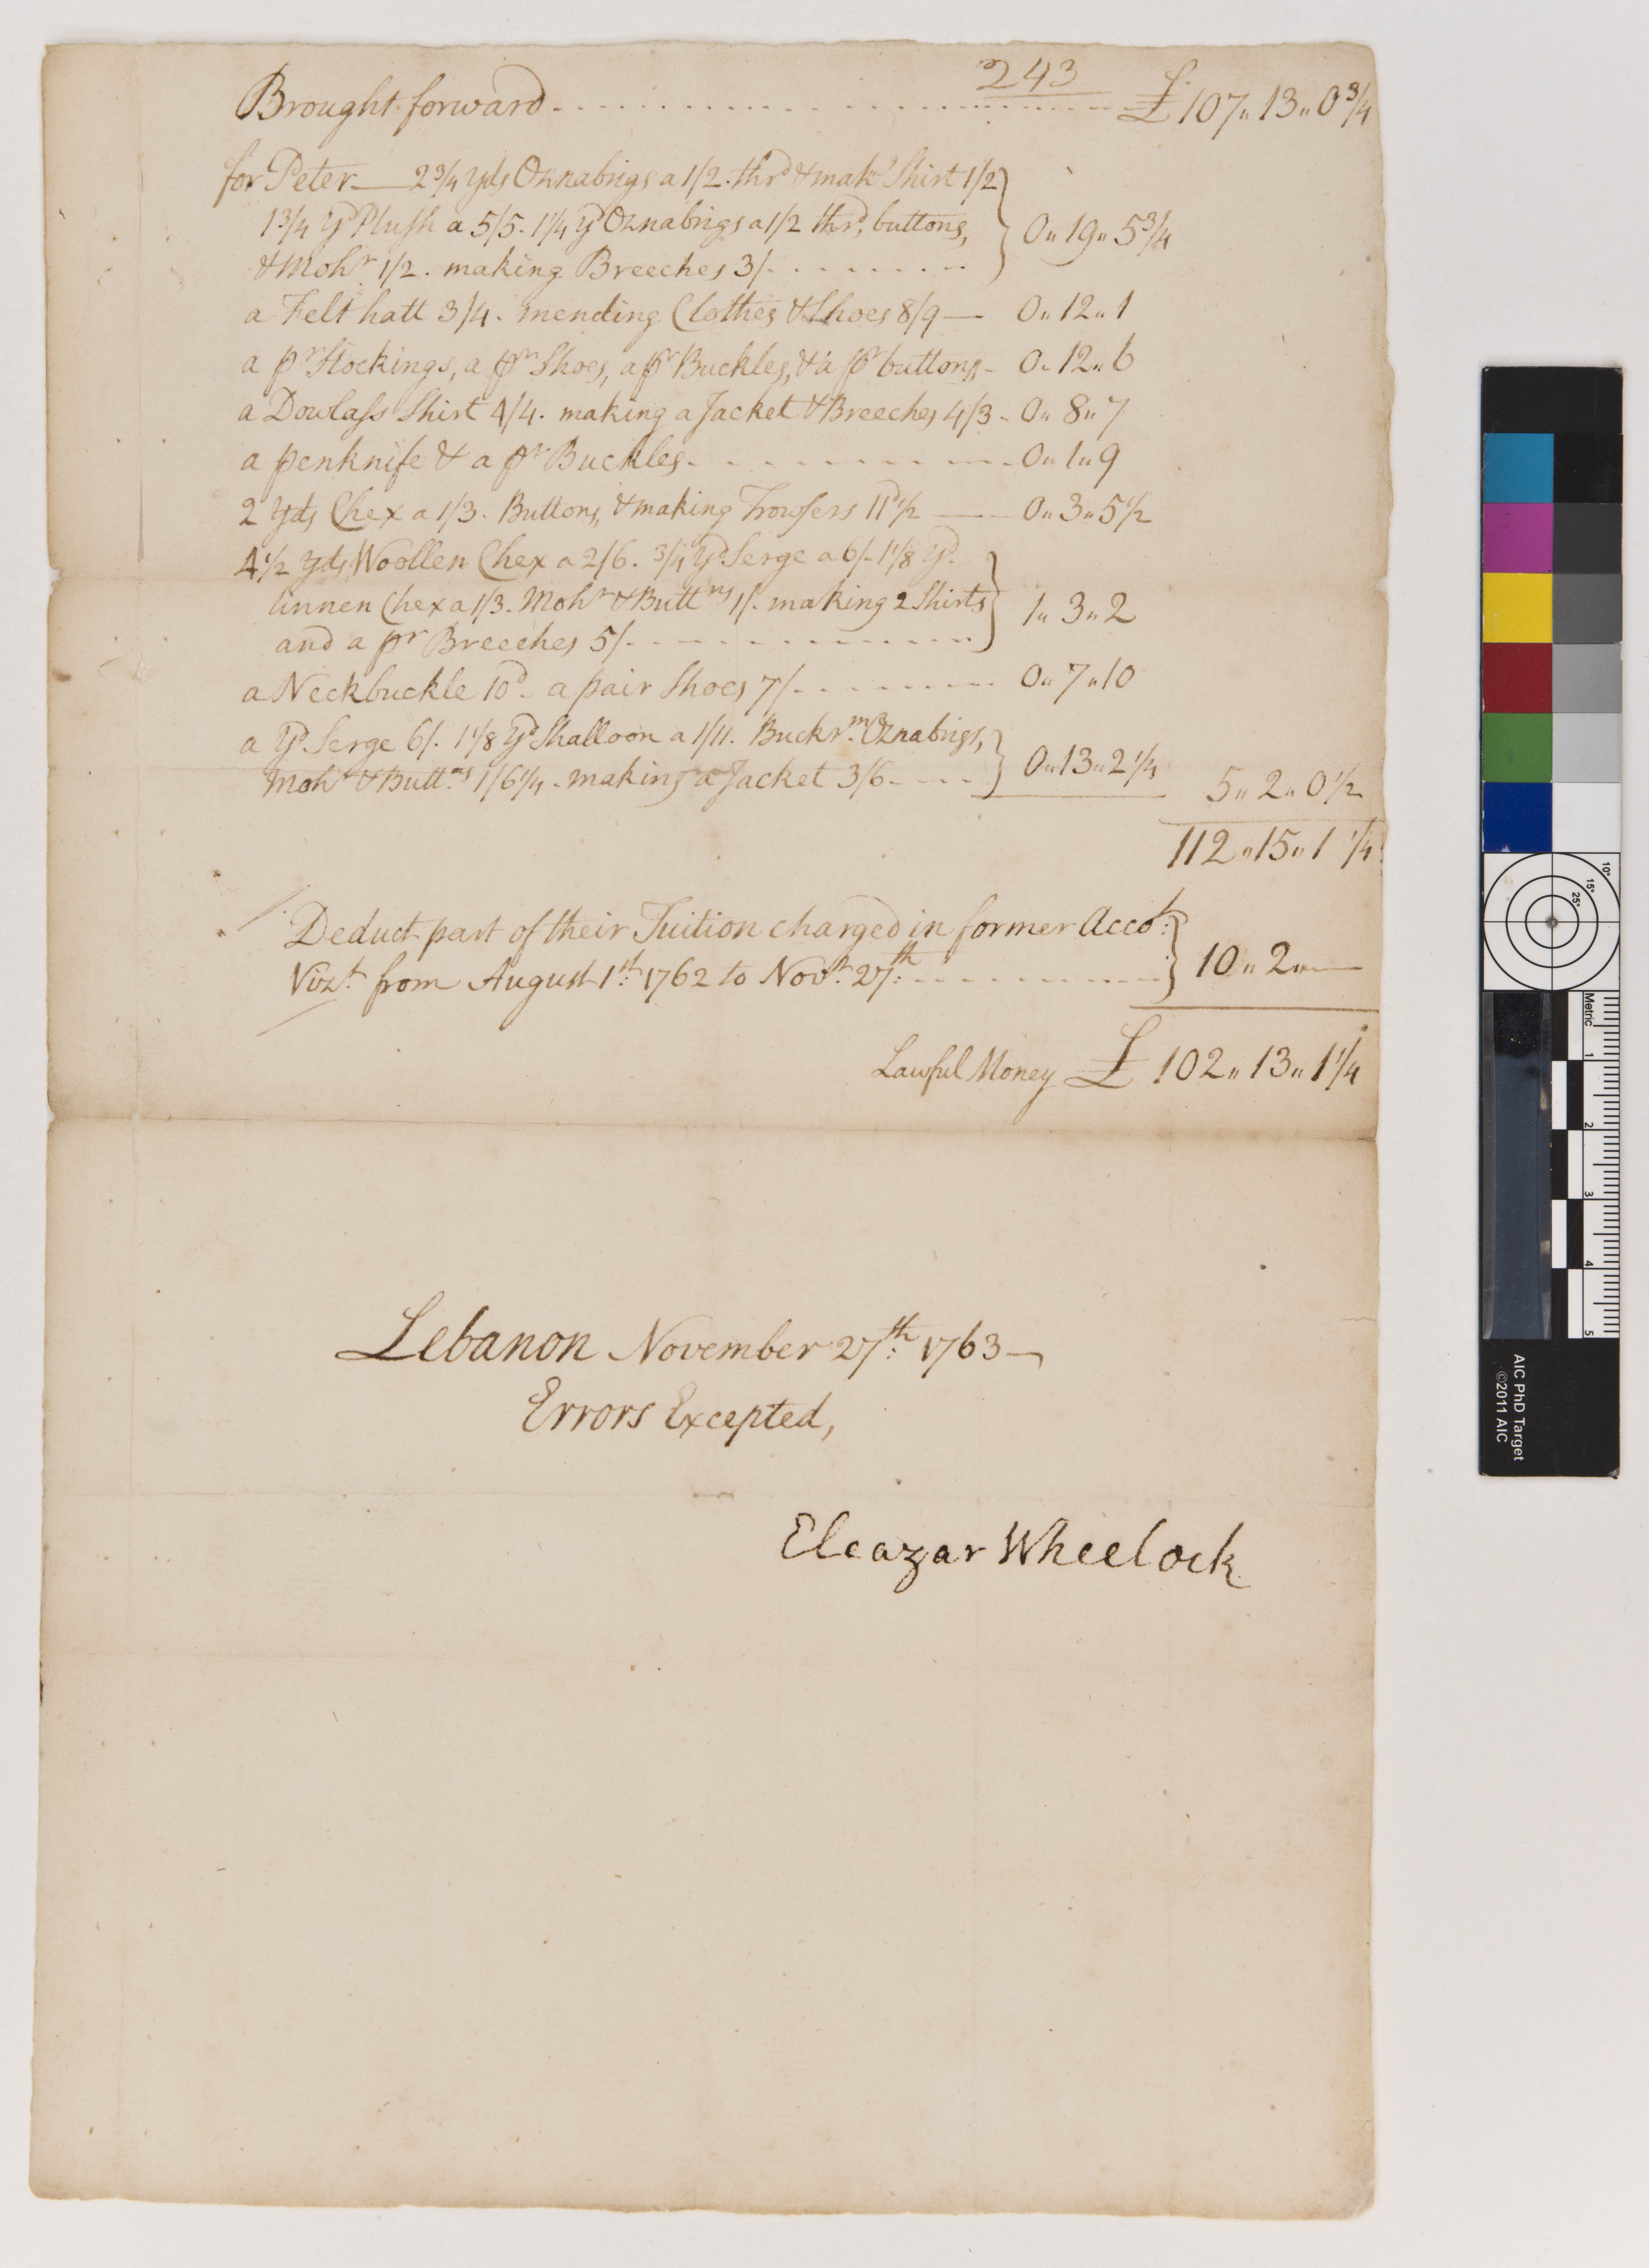 243
Brought forward - - - - - - £ 107 〃 13 〃 0 3/4
for Peter — 2 3/4 yds Oznabrigs a 1/2. thrd & makg Shirt 1/2
1 3/4 yd Plush a 5/5. 1 1/4 yd Oznabrigs a 1/2 thrd, buttons, } 0 〃 19 〃 5 3/4
& Mohr 1/2. making Breeches 3/. - - - - - -
a Felt hatt 3/4. mending Clothes & Shoes 8/9 — 0 〃 12 〃 1
a pr Stockings, a pr Shoes, a pr Buckles, & a pr buttons - 0 〃 12 〃 6
a Dowlass Shirt 4/4. making a Jacket & Breeches 4/3 - 0 〃 8 〃 7
a penknife & a pr Buckles - - - - - - 0 〃 1 〃 9
2 Yds Chex a 1/3. Buttons, & making Trowsers 11d 1/2 — 0 〃 3 〃 5 1/2
4 1/2 yds Woollen Chex a 2/6. 3/4 yd Serge a 6/- 1 1/8 yd.
linnen Chex a 1/3. Mohr & Buttns 1/. making 2 Shirts } 1 〃 3 〃 2
and a pr Breeches 5/. - - - - - -
a Neckbuckle 10d - a pair Shoes 7/. - - - - - - 0 〃 7 〃 10
a yd Serge 6/. 1 1/8 yd Shalloon a 1/11. Buckrm Oznabrigs,
Mohr & Buttns 1/6 1/4 - making a Jacket 3/6 - - - - } 0 〃 13 〃 2 1/4 5 〃 2 〃 0 1/2
112 〃 15 〃 1 1/4
Deduct part of their Tuition charged in former Accot:
Vizt. from August 1st: 1762 to Novr. 27th: - - - - - - } 10 〃 2 〃 —
Lawful Money £ 102 〃 13 〃 1 1/4
Lebanon November 27th: 1763 —
Errors Excepted,
Eleazar Wheelock
10°
15°
25°
Metric
1
2
3
4
5
AIC PhD Target
©2011 AIC